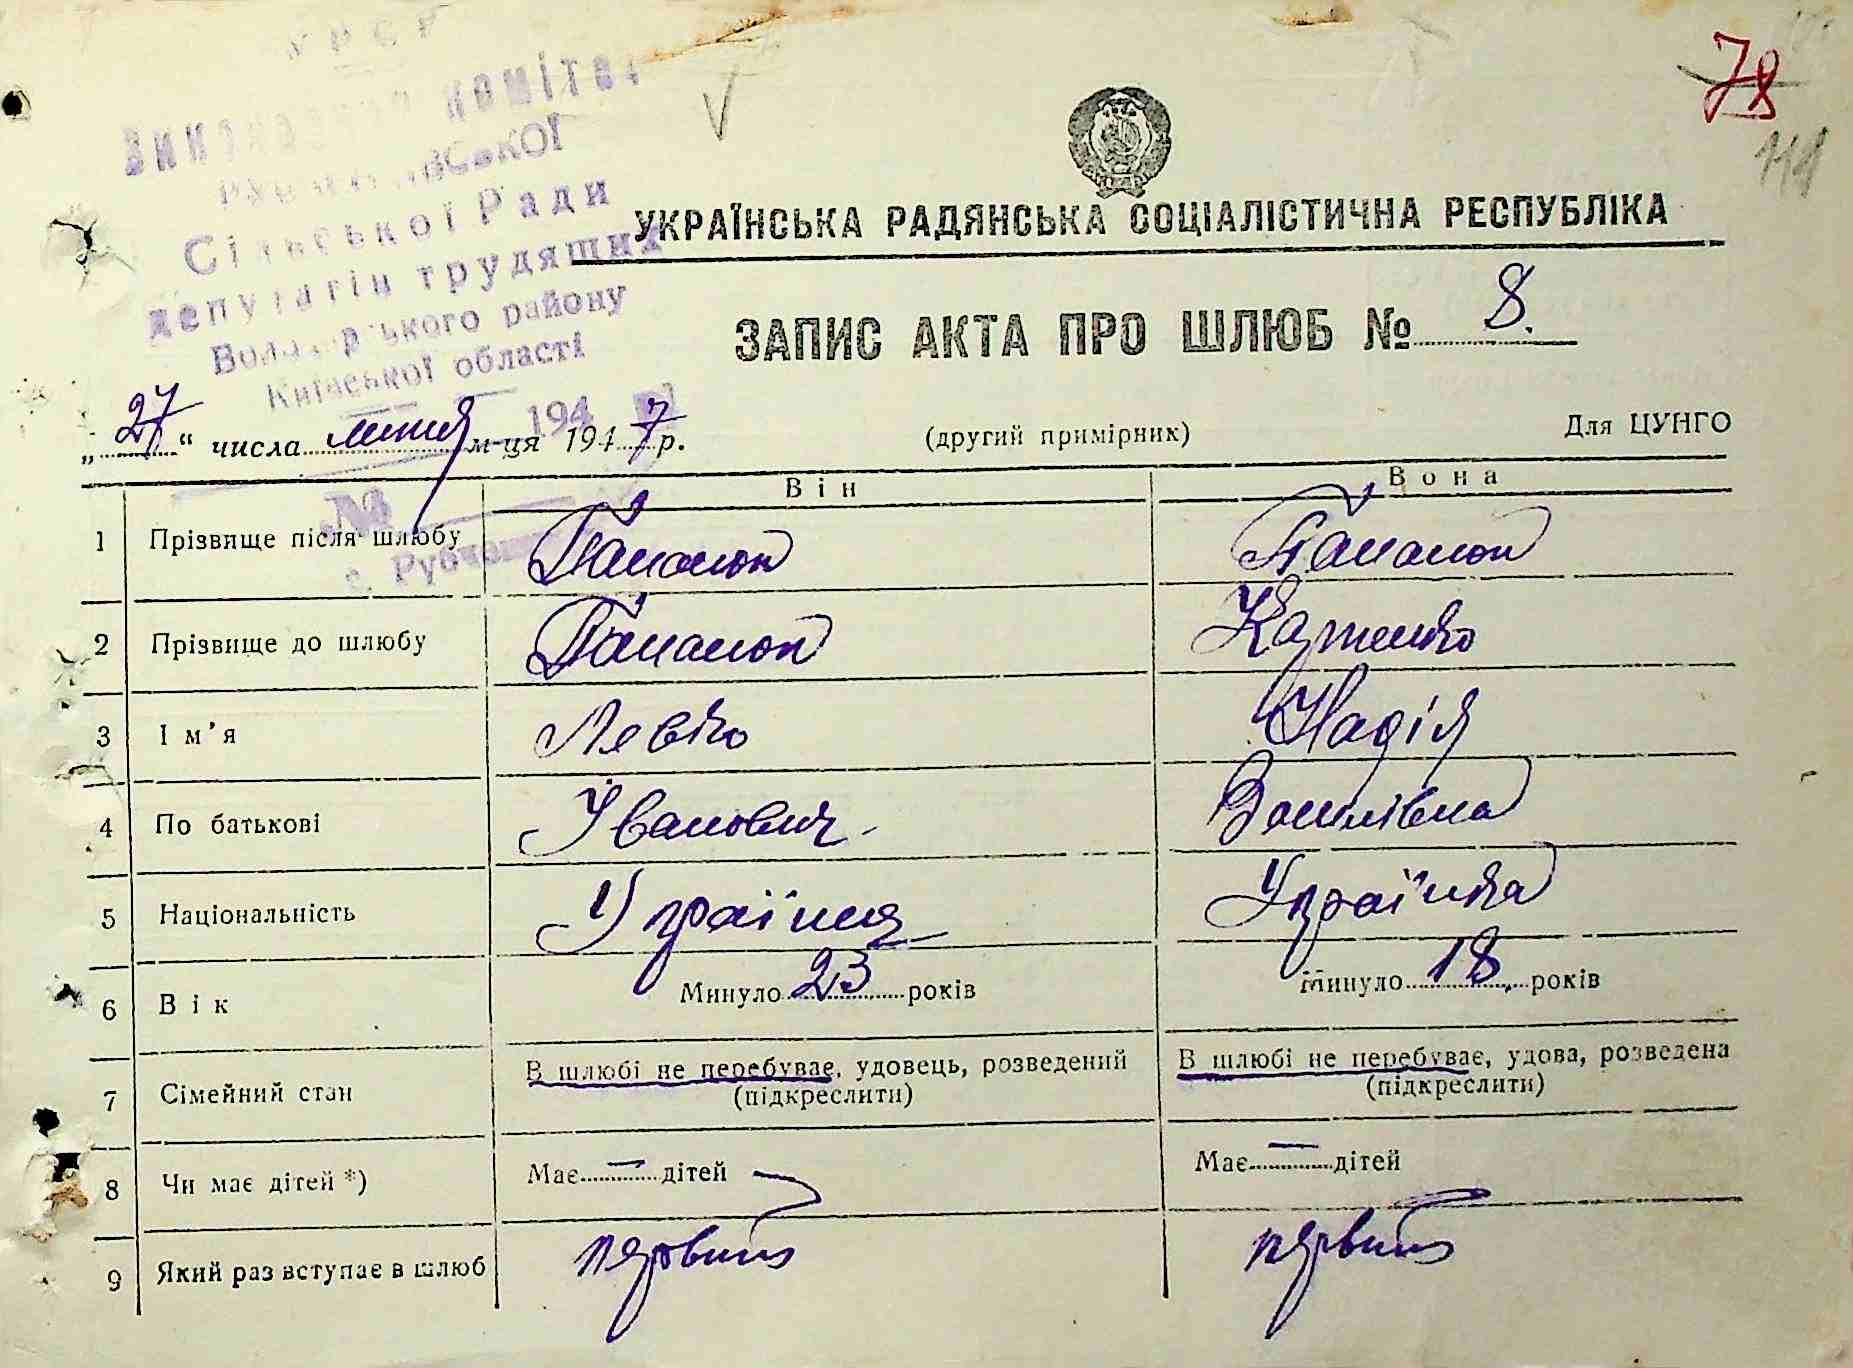 УРСР
Виконавчий комітет
Сільської Ради
депутатів трудящих
Володарського району
Київської області
78
УКРАЇНСЬКА РАДЯНСЬКА СОЦІАЛІСТИЧНА РЕСПУБЛІКА
ЗАПИС АКТА ПРО ШЛЮБ № 8.
„27“ числа липня м-ця 1947 р. (другий примірник) Для ЦУНГО
Він Вона
1 Прізвище після шлюбу
2 Прізвище до шлюбу
3 Ім'я Левко Надія
4 По батькові Іванович Василівна
5 Національність Українець Українка
6 Вік Минуло 23 років Минуло 18 років
7 Сімейний стан В шлюбі не перебуває, удовець, розведений (підкреслити) В шлюбі не перебуває, удова, розведена (підкреслити)
8 Чи має дітей *) Має — дітей Має — дітей
9 Який раз вступає в шлюб первий первий